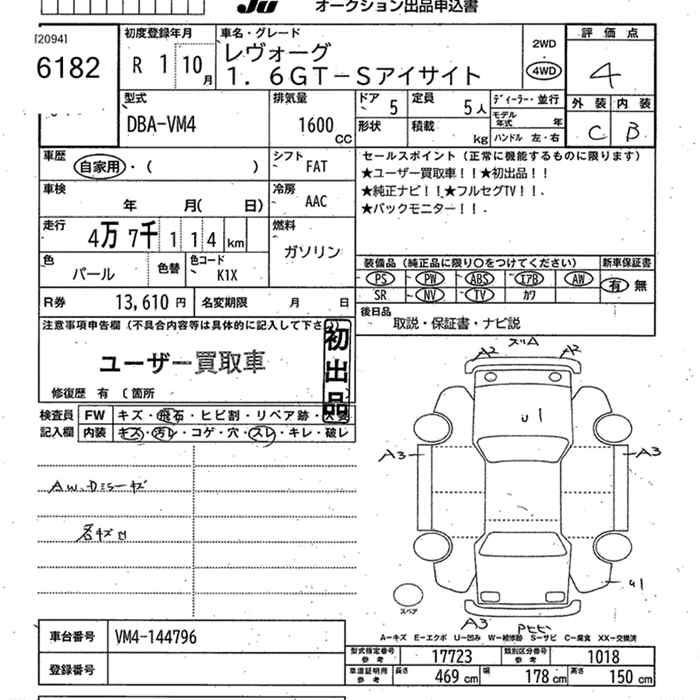 JU オークション出品申込書
[2094]
6182
初度登録年月
R 1 10月
車名・グレード
レヴォーグ
1.6GT-Sアイサイト
2WD
4WD
評価点
4
外装 内装
C B
型式
DBA-VM4
排気量
1600 CC
ドア 5
定員 5人
ディーラー・並行
モデル年式 年
形状
積載 kg
ハンドル 左・右
車歴
自家用・( )
シフト FAT
セールスポイント(正常に機能するものに限ります)
★ユーザー買取車!!★初出品!!
★純正ナビ!!★フルセグTV!!
★バックモニター!!
車検 年 月( 日)
冷房 AAC
走行 4万7千114km
燃料 ガソリン
色 パール
色替
色コード K1X
装備品(純正品に限り○をつけてください)
新車保証書
PS PW ABS エアB AW
有 無
SR NV TV カワ
R券 13,610円
名変期限 月 日
後日品
取説・保証書・ナビ説
注意事項申告欄(不具合内容等は具体的に記入して下さい)
ユーザー買取車
初出品
修復歴 有(箇所
検査員記入欄
FW キズ・飛石・ヒビ割・リペア跡・
内装 キズ・汚レ・コゲ・穴・スレ・キレ・破レ
A2 ズリA A2
U1
A3 A3
U1
スペア
A3
A-キズ E-エクボ U-凹み W-補修跡 S-サビ C-腐食 XX-交換済
車台番号 VM4-144796
登録番号
型式指定番号参考 17723
類別区分番号参考 1018
車庫証明用参考
長さ 469 cm
幅 178 cm
高さ 150 cm